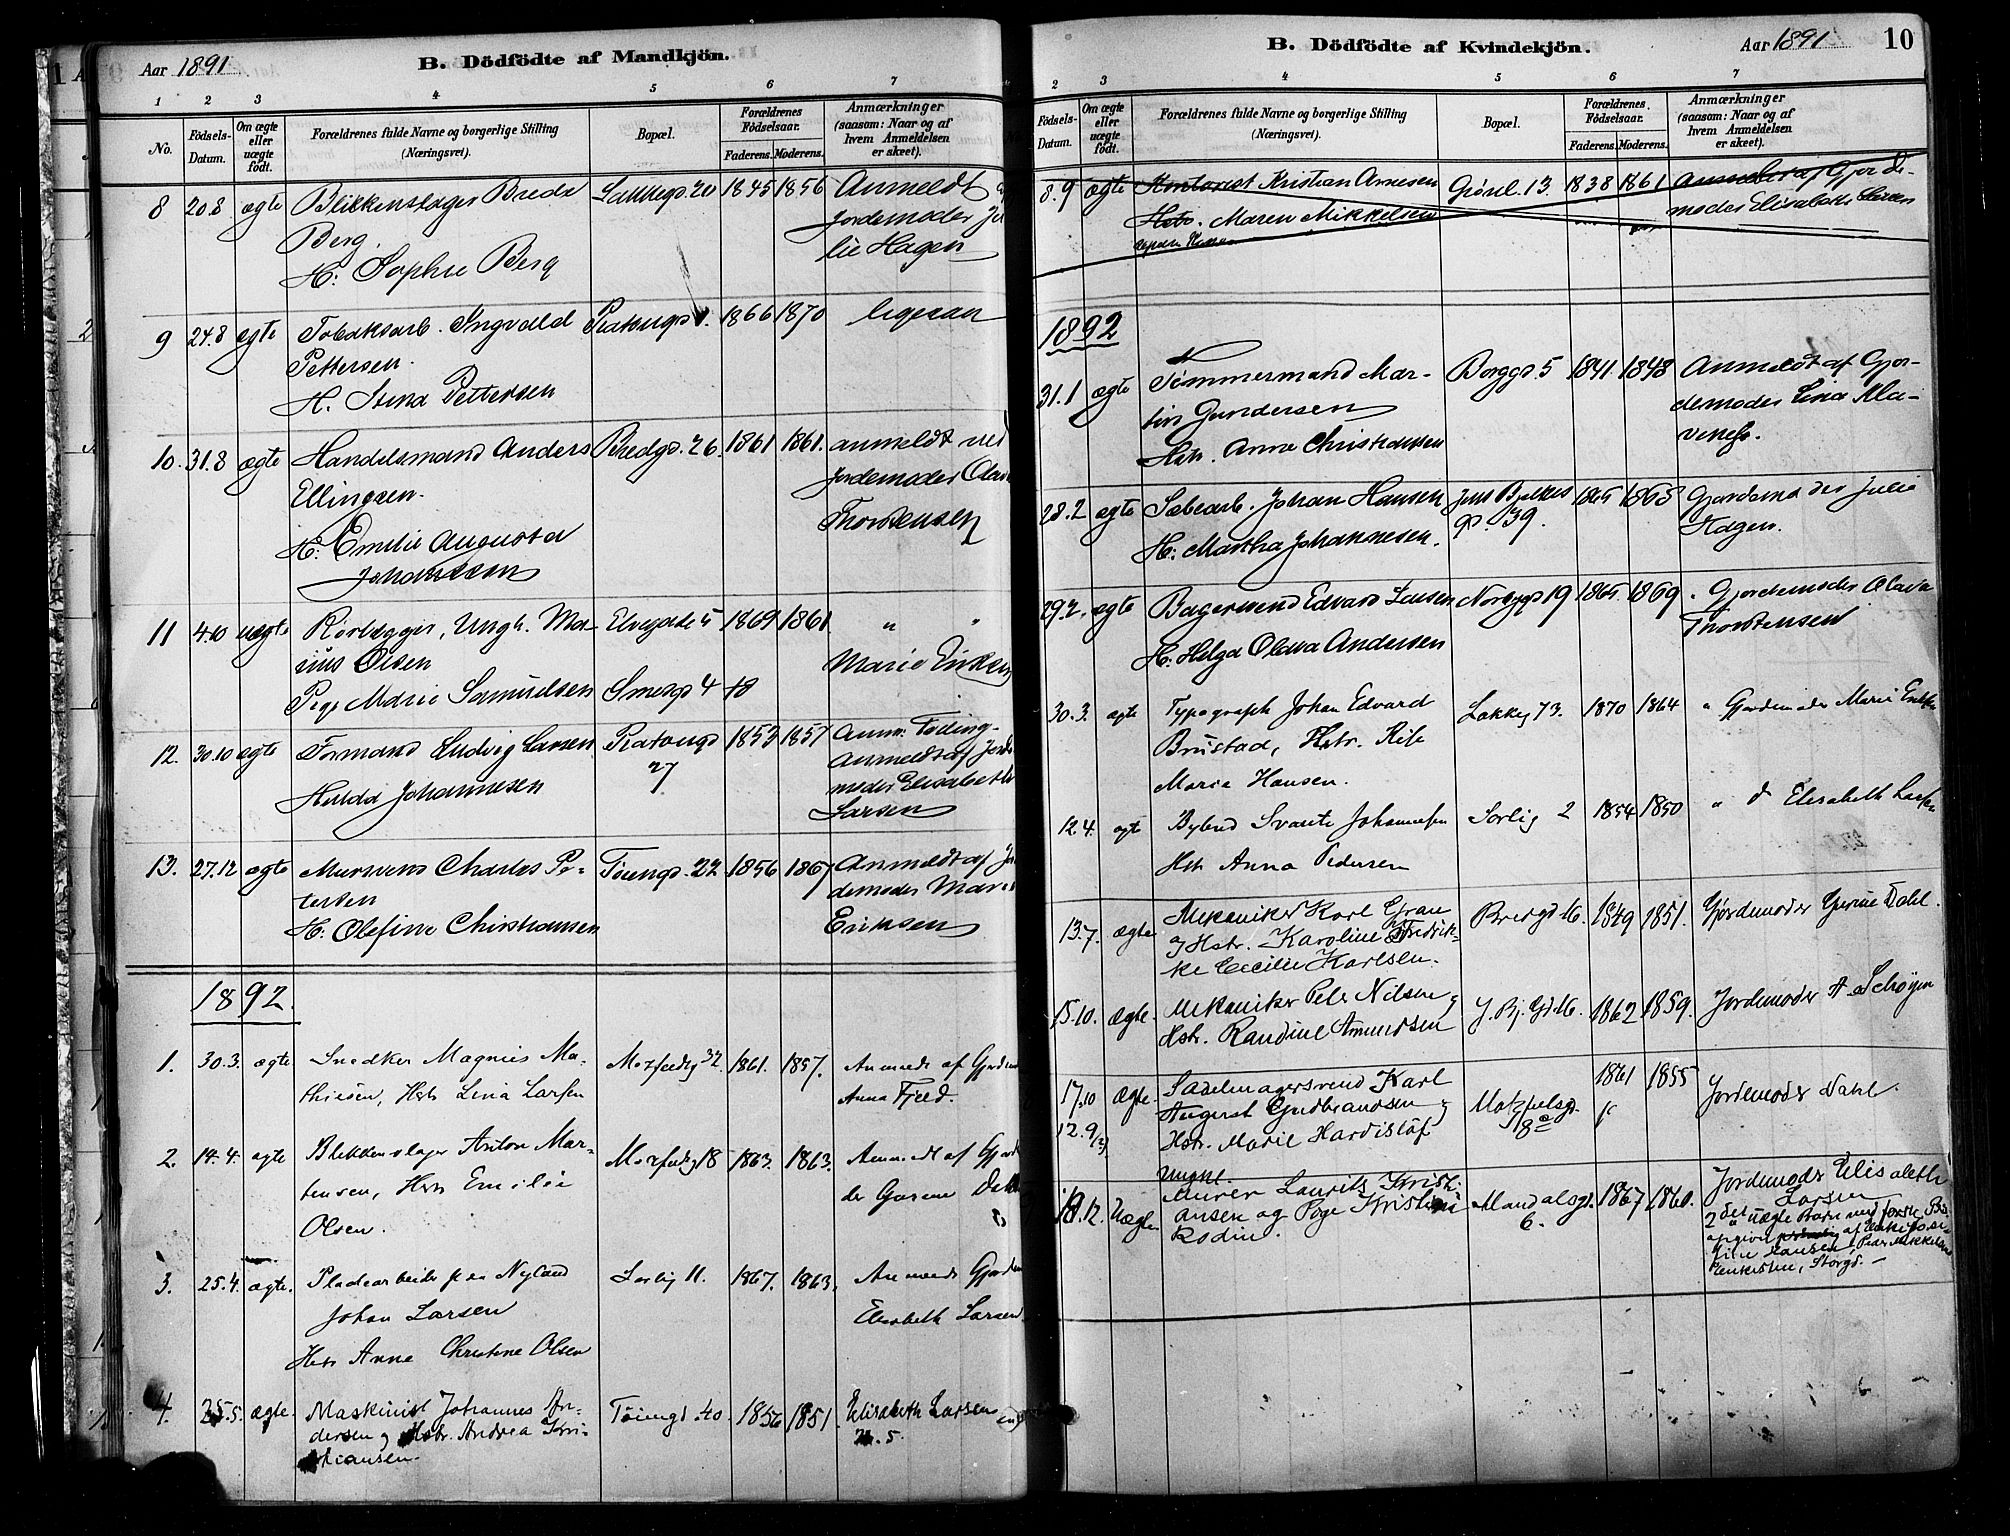 Aar 1891
B. Dödfödte af Mandkjön.
1 2 3 4 5 6 7
No.
Födsels-Datum.
Om ægte eller uægte födt.
Forældrenes fulde Navne og borgerlige Stilling
(Næringsvei).
Bopæl.
Forældrenes Födselsaar.
Faderens. Moderens.
Anmærkninger
(saasom: Naar og af
hvem Anmeldelsen
er skeet).
8 20.8 ægte Blikkenslager Breda 20 1845 1856 Anmeldt
Berg. Jordemoder
H: Sophie Berg lie Hagen
9 24.8 ægte Tobaksarb. Ingvald 1866 1870 ligesaa
Pettersen.
H. Stina Pettersen
10. 31.8 ægte Handelsmand Anders Bredgd. 26. 1861 1861. anmeldt ved
Ellingsen. Jordemoder Olava
H: Emilie Augusta Thorstensen
Johanssen
11 4.10 uægte Rørlægger, Ungk. Ma- Elvegade 5 1869 1861. " "
rius Olsen Marie Eriksen
Pige Marie Samuelsen Smedgd 4
12. 30.10 ægte Formand Ludvig Larsen Platougd 1853 1857
27 Anmeldt af Jorde
Hulda Johannesen moder Elisabeth
Larsen
13. 27.12 ægte Mursvend Charles Pe- Töiengd. 22 1856 1867 Anmeldt af Jor
tersen demoder Marie
H: Olefine Christiansen Eriksen
1892.
1. 30.3. ægte Snedker Magnus Ma- 32. 1861. 1857. af Gjordem
thiesen, Hstr Lina Larsen Anna Fjeld.
2. 14.4. ægte Blikkenslager Anton Mar- 18 1863. 1863. af Gjord
tensen, Hstr Emilie
Olsen.
3. 25.4. ægte. Pladearbeider paa Nyland Sorlig 11. 1867. 1863.
Johan Larsen Elisabeth Larsen
Hstr Anne Christine Olsen
4. 25.5. ægte. Maskinist Johannes An- Töiengd. 40 1856 1851. Elisabeth Larsen
dersen, Hstr. Andrea Kri-
stiansen.
B. Dödfödte af Kvindekjön.
Aar 1891 10
2 3 4 5 6 7
Födsels-Datum.
Om ægte eller uægte födt.
Forældrenes fulde Navne og borgerlige Stilling
(Næringsvei).
Bopæl.
Forældrenes Födselsaar.
Faderens. Moderens.
Anmærkninger
(saasom: Naar og af
hvem Anmeldelsen
er skeet).
8.9 ægte Kontorist Kristian Arnesen Grønl. 13. 1838 1861 Anmeldt af Gjorde-
Hstr. Maren Mikkelsen moder Elisabeth Larsen
1892
31.1 ægte Tömmermand Mar- Borggd. 5 1841. 1848 Anmeldt af Gjor-
tin Gundersen demoder Lina Kla-
Hstr. Anne Christiansen veness.
28.2 ægte Sæbearb. Johan Hansen Jens Bjelkes 1865 1865 Gjordemoder Julie
gd. 39. Hagen.
H: Martha Johannesen.
29.2. ægte Bagersvend Edvard Larsen Norbygd 19 1865. 1869 Gjordemoder Olava
H: Helga Olava Andersen Thorstensen
30.3. ægte Typograph Johan Edvard Lakkeg 73. 1870 1864 " Gjordemoder Marie Eriksen
Brustad, Hstr.
Marie Hansen.
12.4. ægte Bybud Svante Johannesen Sorlig 2 1854 1850 " Elisabeth Larsen
Hstr Anna Pedersen
13.7. ægte Mekaniker Karl Gran Bredgd. 16. 1849 1851. Gjordemoder Gurine Dahl.
og Hstr. Karoline Fredrik-
ke Cecilie Karlsen.
15.10. ægte. Mekaniker Peter Nilsen, J. Bj. Gd. 16. 1862 1859. Jordemoder A. Schøyen
Hstr. Randine Amundsen
17.10 ægte. Sadelmagersvend Karl 1861 1855 Jordemoder Dahl.
August Gudbrandsen, Motzfeldsgd.
12.9 Hstr. Marie Hardislöf 18c
18.12. Uægte Ungkl.
Murer Laurits Kristi- Mandalsgd. 1867 1860. Jordemoder Elisabeth
ansen og Pige Kristine 6. Larsen
Rodin. 2det uægte Barn med
Larsen, Peder Mikkelsens
Enkestue, Storgd. —